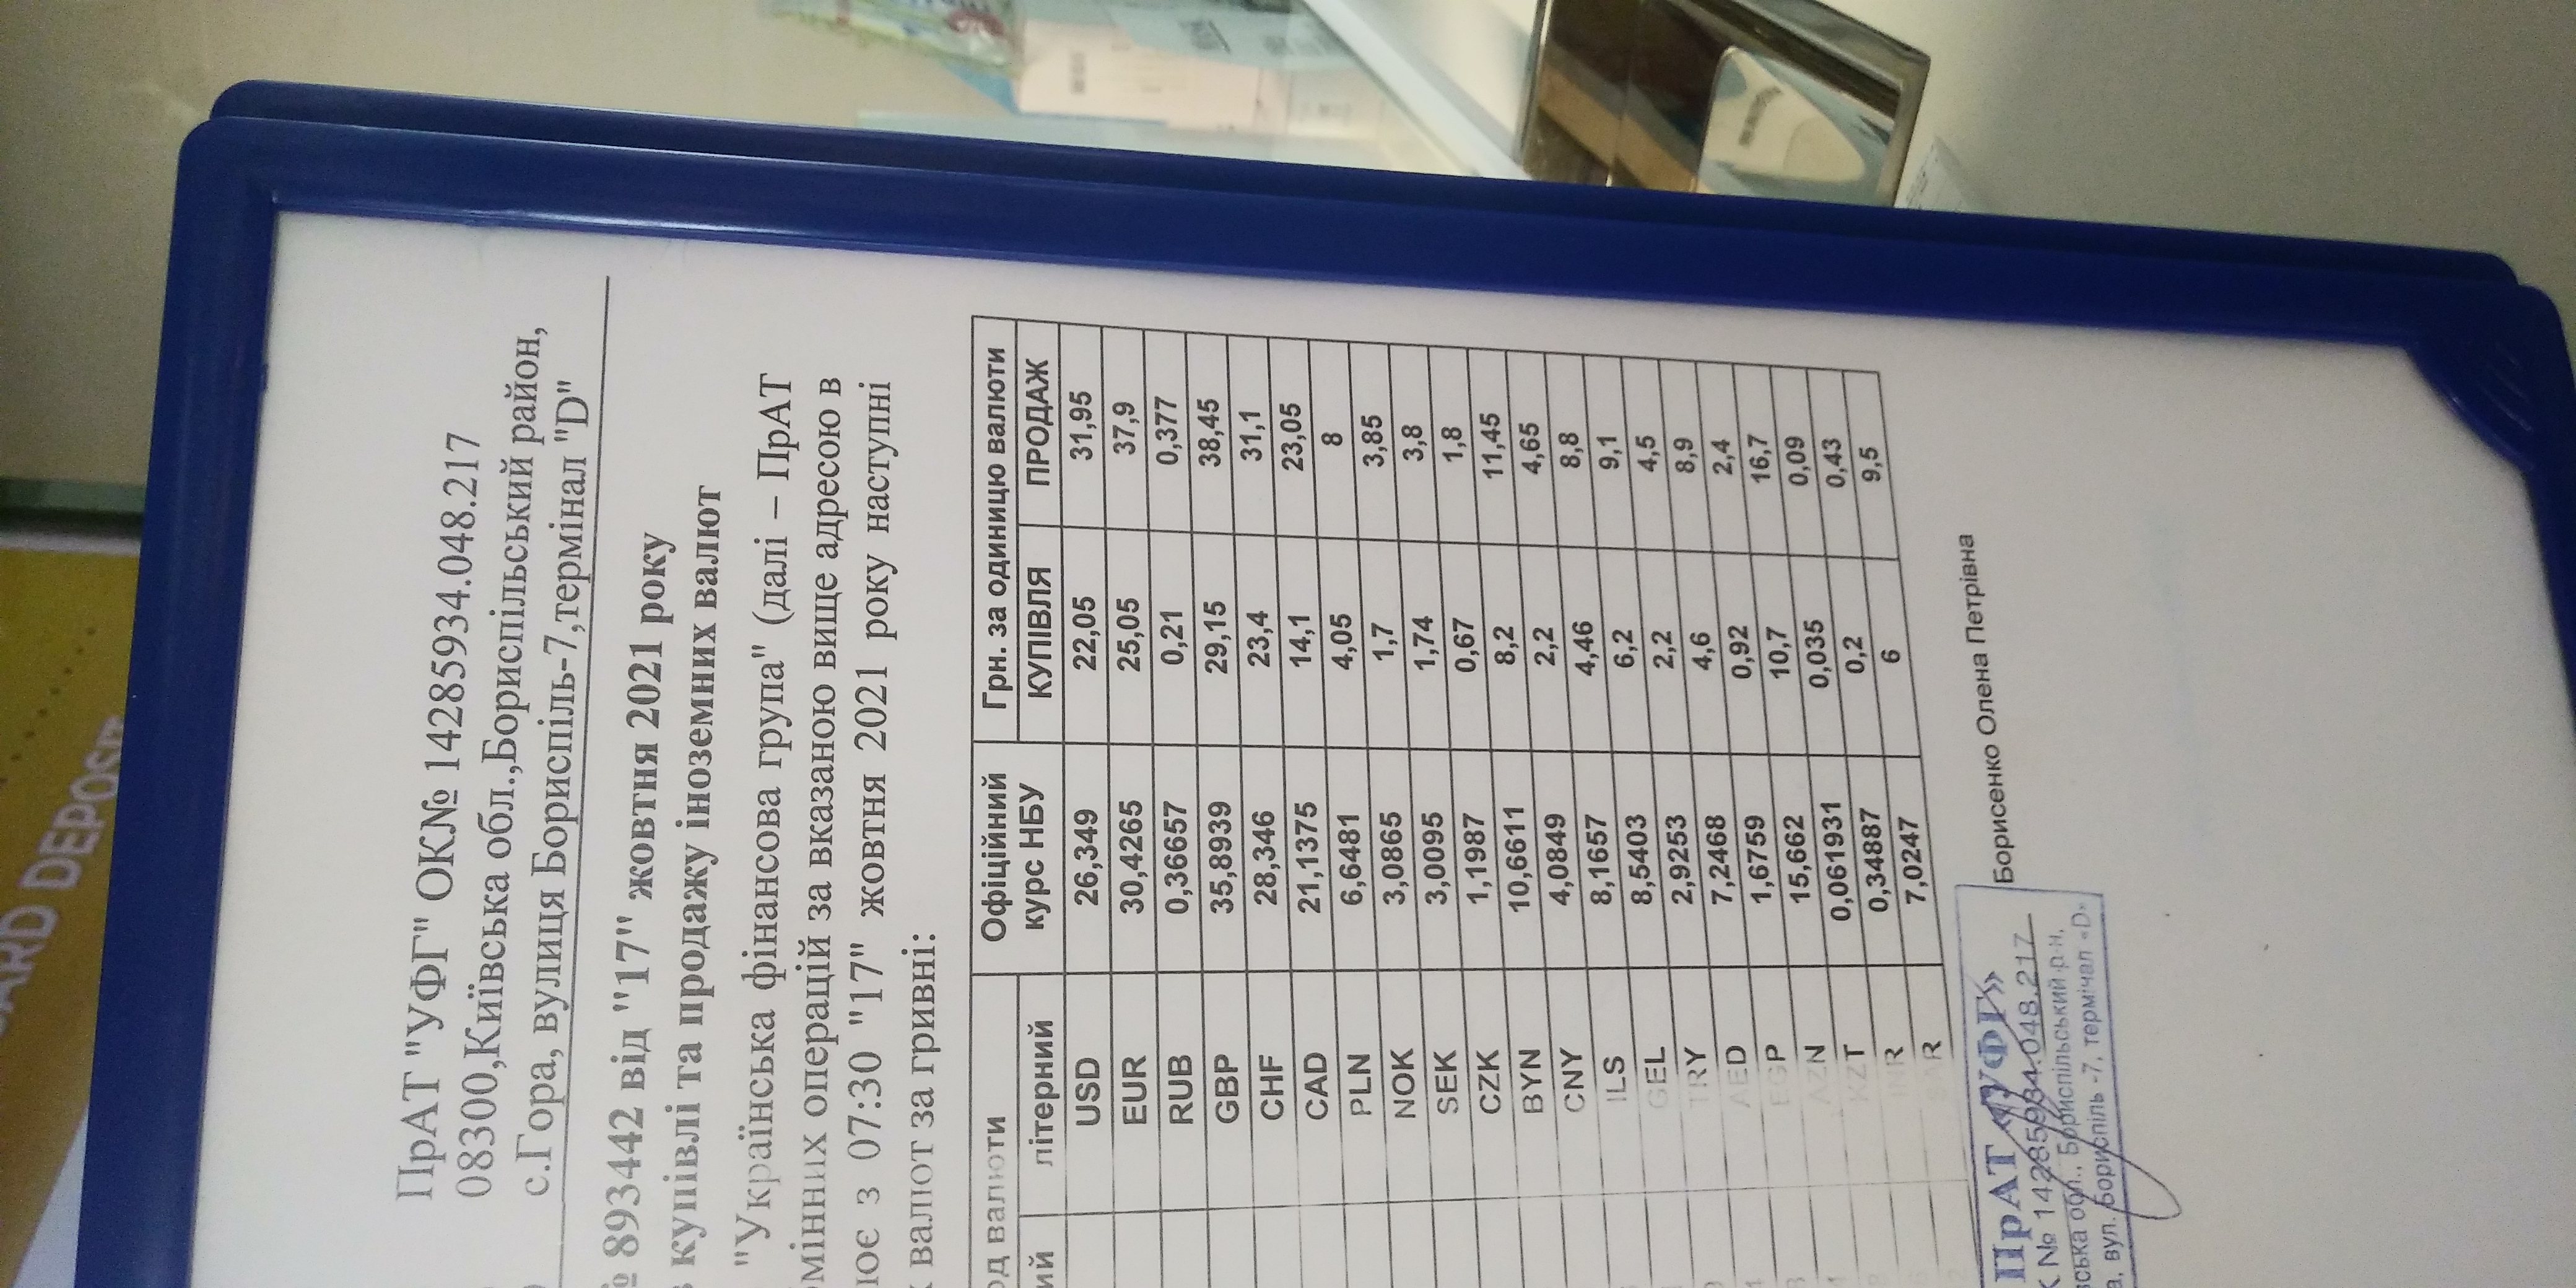 ПрАТ "УФГ" ОК№ 14285934.048.217
08300,Київська обл.,Бориспільський район,
с.Гора, вулиця Бориспіль-7,термінал "D"
№ 893442 від "17" жовтня 2021 року
купівлі та продажу іноземних валют
"Українська фінансова група" (далі – ПрАТ
мінних операцій за вказаною вище адресою в
ює з 07:30 "17" жовтня 2021 року наступні
валют за гривні:
од валюти Офіційний курс НБУ Грн. за одиницю валюти
ий літерний КУПІВЛЯ ПРОДАЖ
USD 26,349 22,05 31,95
EUR 30,4265 25,05 37,9
RUB 0,36657 0,21 0,377
GBP 35,8939 29,15 38,45
CHF 28,346 23,4 31,1
CAD 21,1375 14,1 23,05
PLN 6,6481 4,05 8
NOK 3,0865 1,7 3,85
SEK 3,0095 1,74 3,8
CZK 1,1987 0,67 1,8
BYN 10,6611 8,2 11,45
CNY 4,0849 2,2 4,65
ILS 8,1657 4,46 8,8
GEL 8,5403 6,2 9,1
TRY 2,9253 2,2 4,5
AED 7,2468 4,6 8,9
EGP 1,6759 0,92 2,4
AZN 15,662 10,7 16,7
KZT 0,061931 0,035 0,09
INR 0,34887 0,2 0,43
SAR 7,0247 6 9,5
Борисенко Олена Петрівна
ПрАТ «УФГ»
К № 14285934.048.217
вська обл., Бориспільський р-н,
а, вул. Бориспіль -7, термінал «D»
CARD DEPOSIT